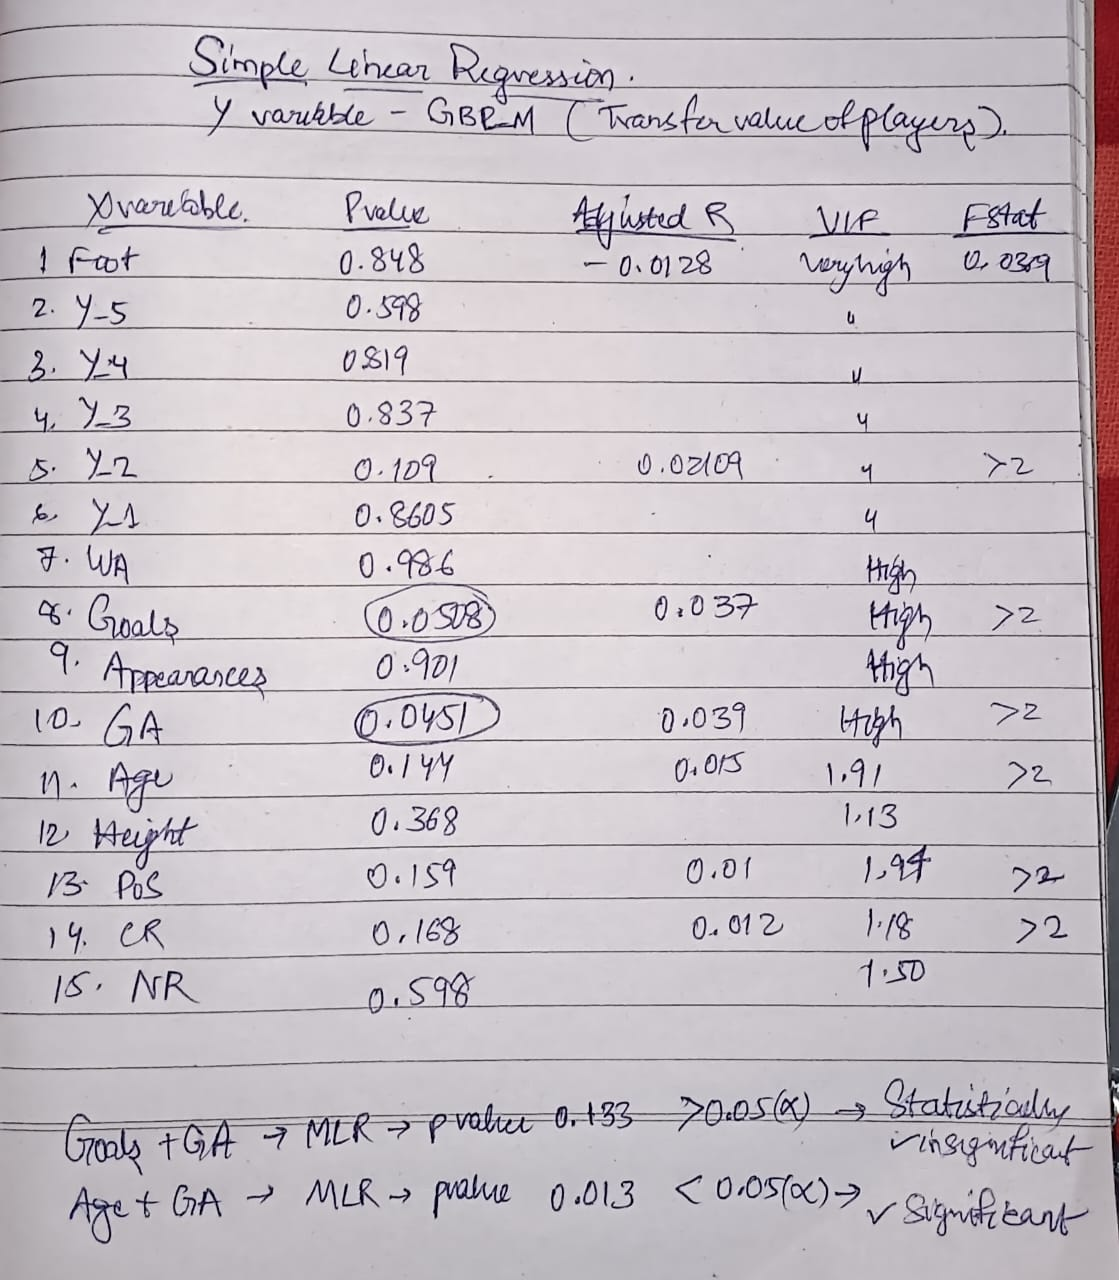 Simple Linear Regression.
Y variable - GBP_M (Transfer value of players).
X variable. Pvalue Adjusted R VIF Fstat
1 Foot 0.848 - 0.0128 very high 0.0369
2. Y_5 0.598 "
3. Y_4 0.819 "
4. Y_3 0.837 "
5. Y_2 0.109 0.02109 " >2
6. Y_1 0.8605 "
7. WA 0.986 High
8. Goals 0.0508 0.037 High >2
9. Appearances 0.901 High
10. GA 0.0451 0.039 High >2
11. Age 0.144 0.015 1.91 >2
12 Height 0.368 1.13
13. PoS 0.159 0.01 1.94 >2
14. CR 0.168 0.012 1.18 >2
15. NR 0.598 1.50
Goals + GA → MLR → p value 0.133 >0.05(α) → Statistically
✓ insignificant
Age + GA → MLR → pvalue 0.013 < 0.05(α) → ✓ Significant